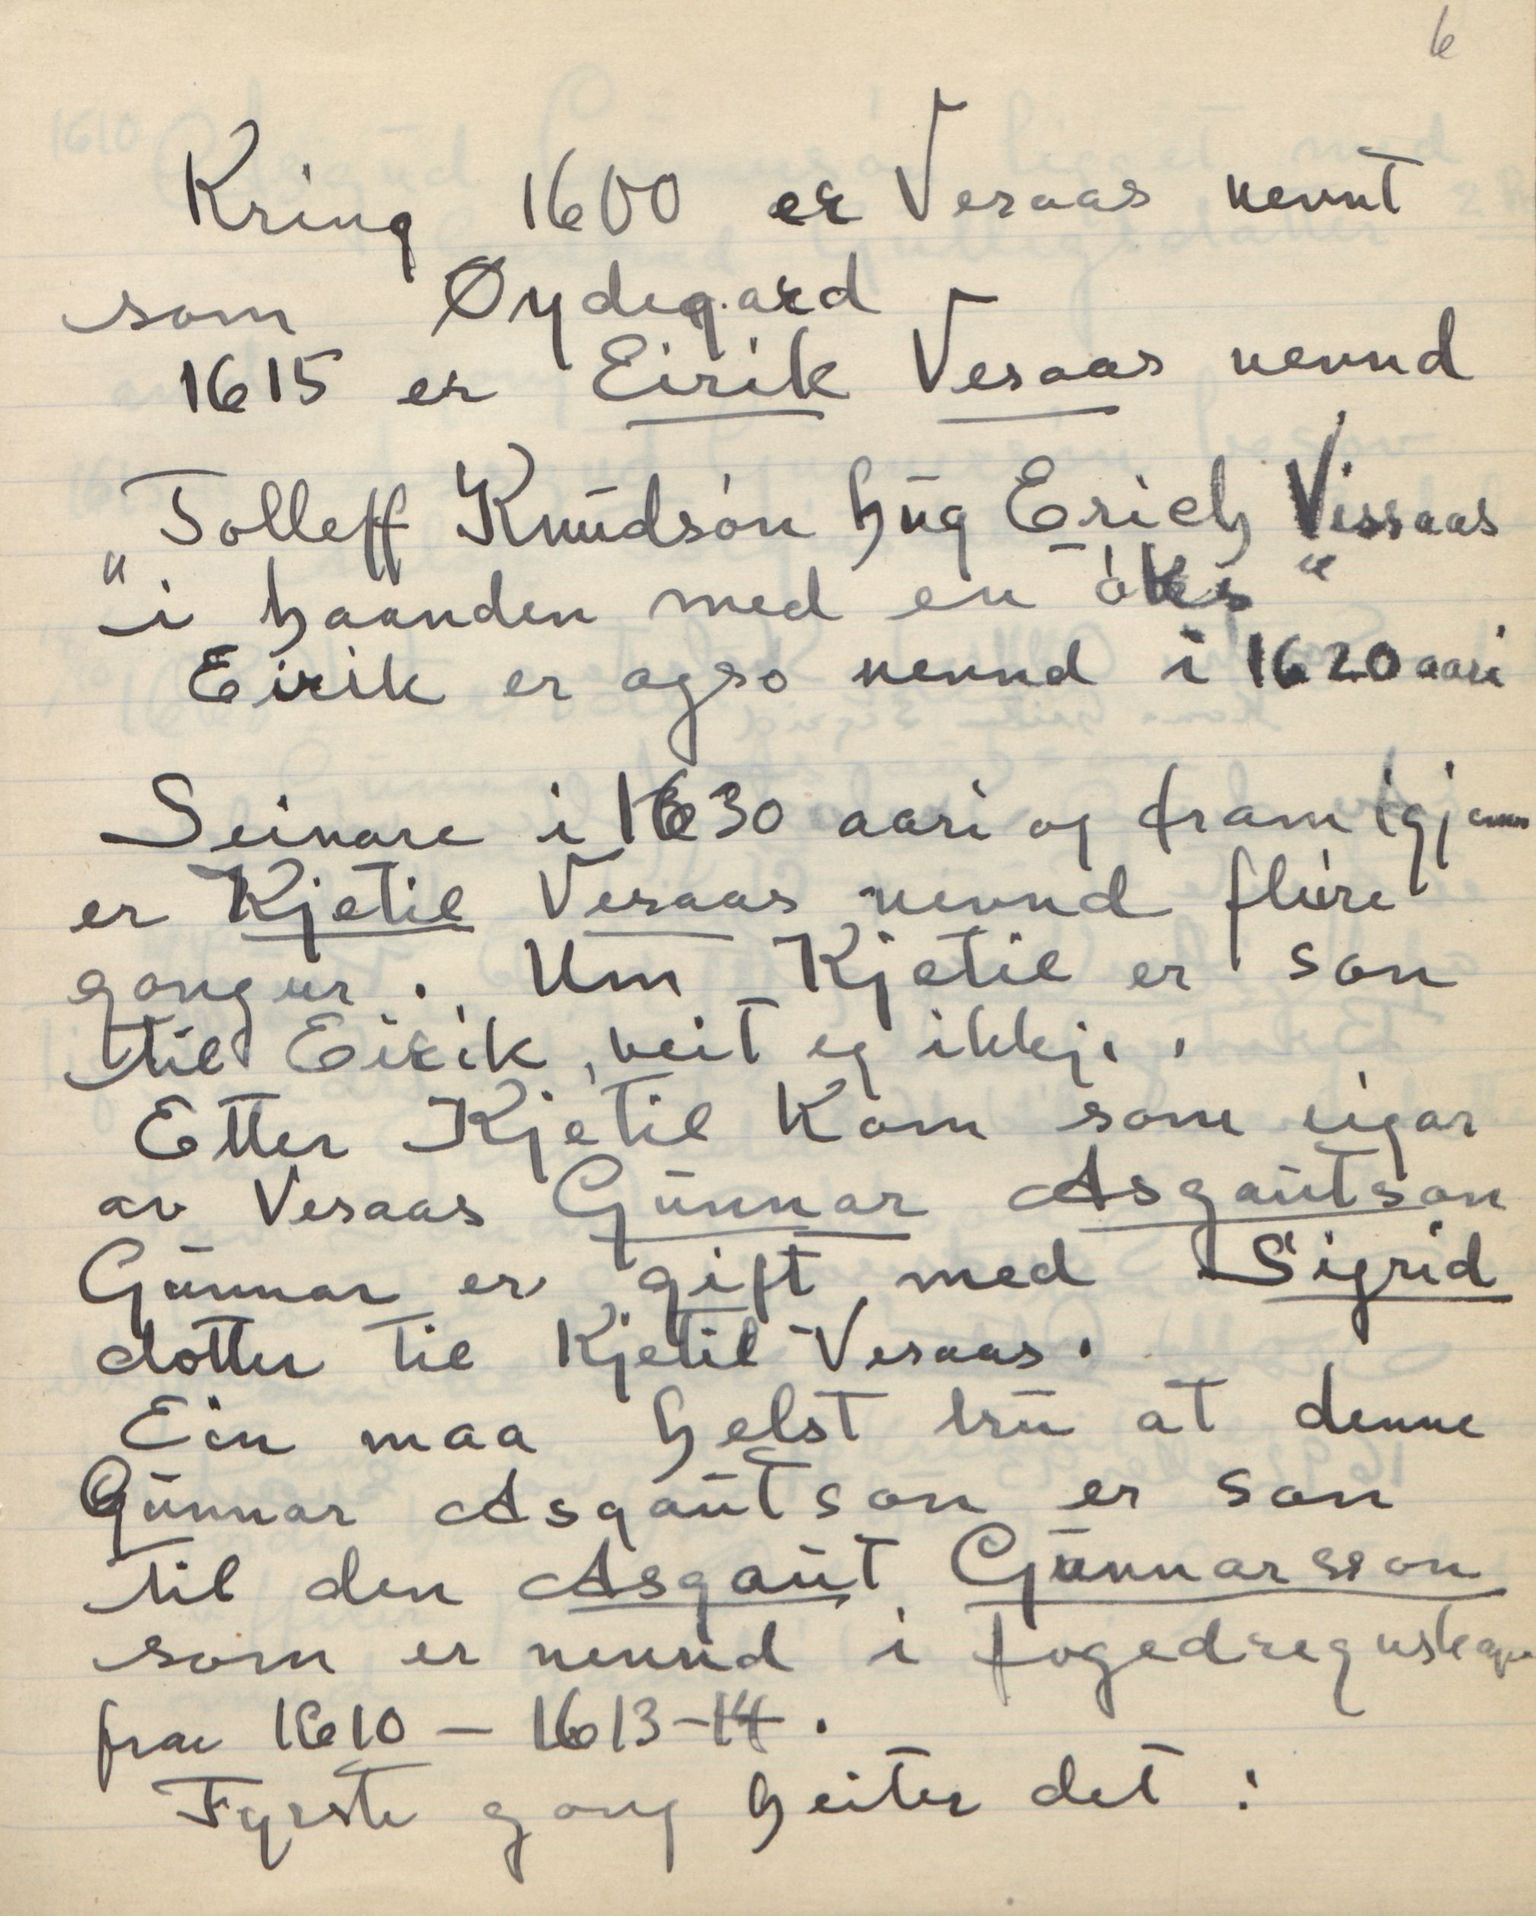 6
Kring 1600 er Vesaas nevnt
som Øydegard
1615 er Eirik Vesaas nevnd
Tolleff Knudsön hug Erich Vissaas
"i haanden med en öks"
Eirik er ogso nevnd i 1620 aari
Seinare i 1630 aari og framigjenn
er Kjetil Vesaas nevnd fleire
gongur. Um Kjetil er son
til Eirik, veit eg ikkje.
Etter Kjetil kom som eigar
av Vesaas Gunnar Asgautson
Gunnar er gift med Sigrid
dotter til Kjetil Vesaas.
Ein maa helst tru at denne
Gunnar Asgautson er son
til den Asgaut Gunnarsson
som er nevnd i fogedregnskapa
fraa 1610 – 1613-14.
Fyrste gong heiter det :